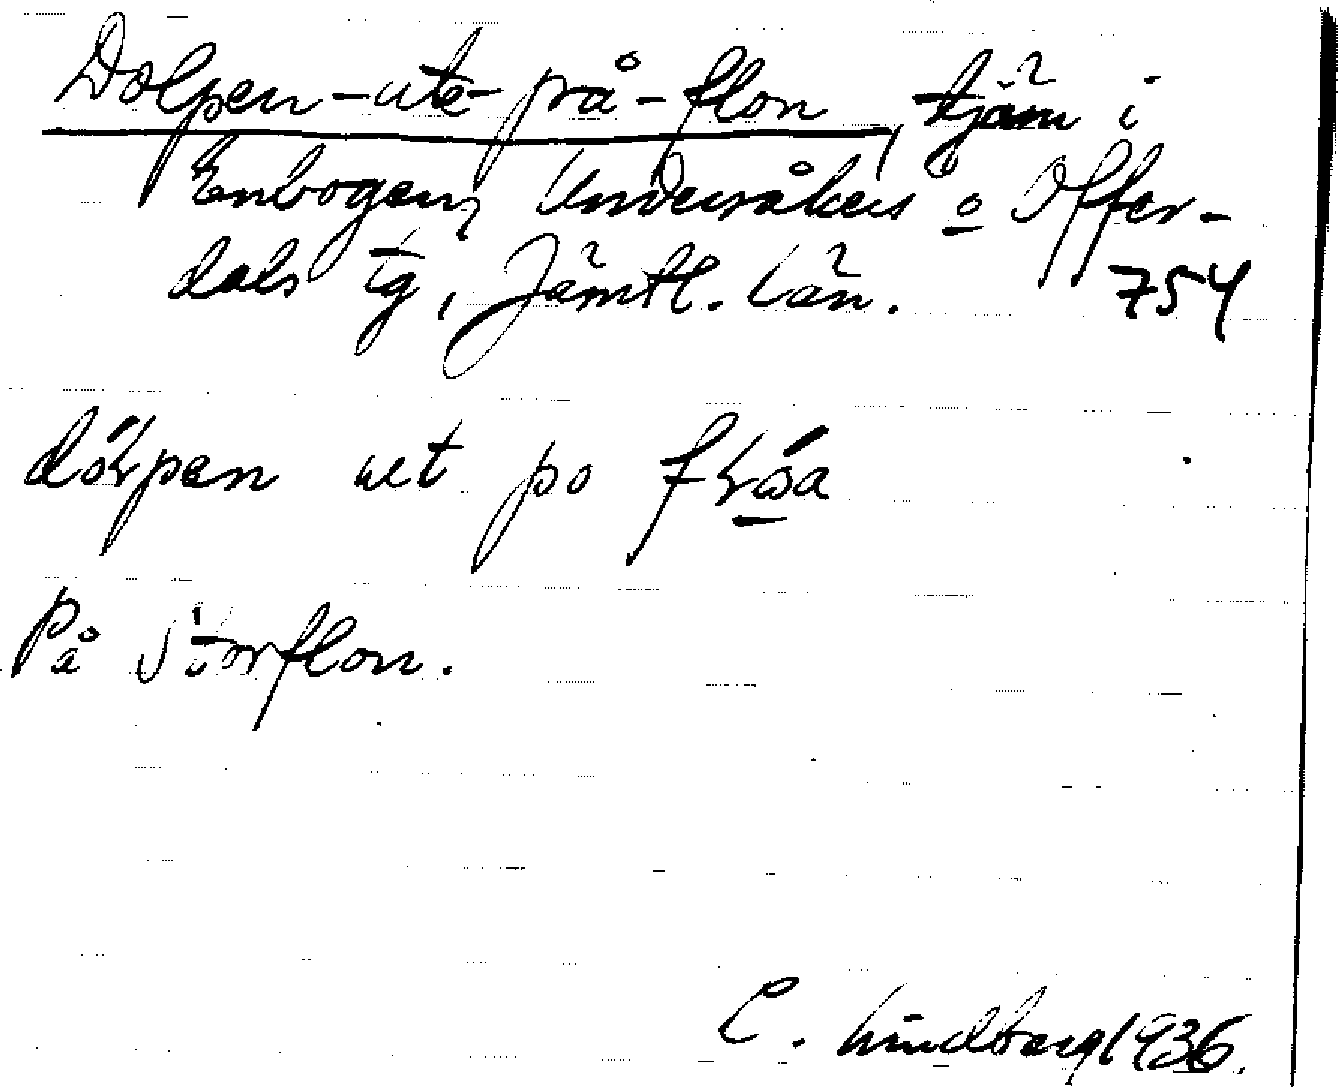 Dolpen-ute-på-flon, tjärn i
Enbogen, Undersåkers o Offer-
dals tg, Jämtl. län. 754
ut po
På Storflon.
C. Lindberg 1936.